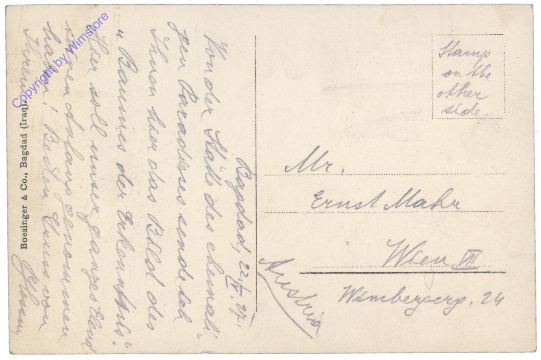 Bagdad, 22/IV. 27.
Von der Stätte des ehemali-
gen Paradieses sende ich
Ihnen hier das Bild des
"Baumes der Erkenntnis".
Hier soll unser ganzes Elend
seinen Anfang genommen
haben! Besten Gruss von
Ihrem
Boesinger & Co., Bagdad (Iraq).
Stamp
on the
other
side.
Mr.
Ernst Mahr
Wien VII
Wimbergerg. 24
Austria
Copyright by Wimstore